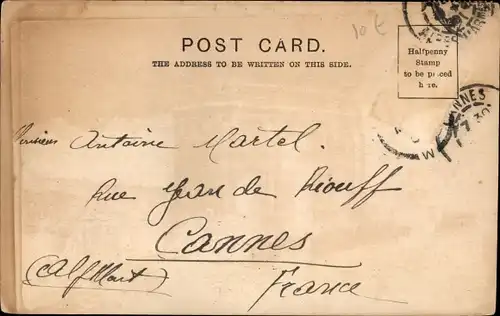 10 €
POST CARD.
THE ADDRESS TO BE WRITTEN ON THIS SIDE.
Halfpenny
Stamp
to be placed
here.
CANNES
7 30
Monsieur Antoine Martel.
Rue Jean de Riouff
Cannes
(Alp Marit)
France